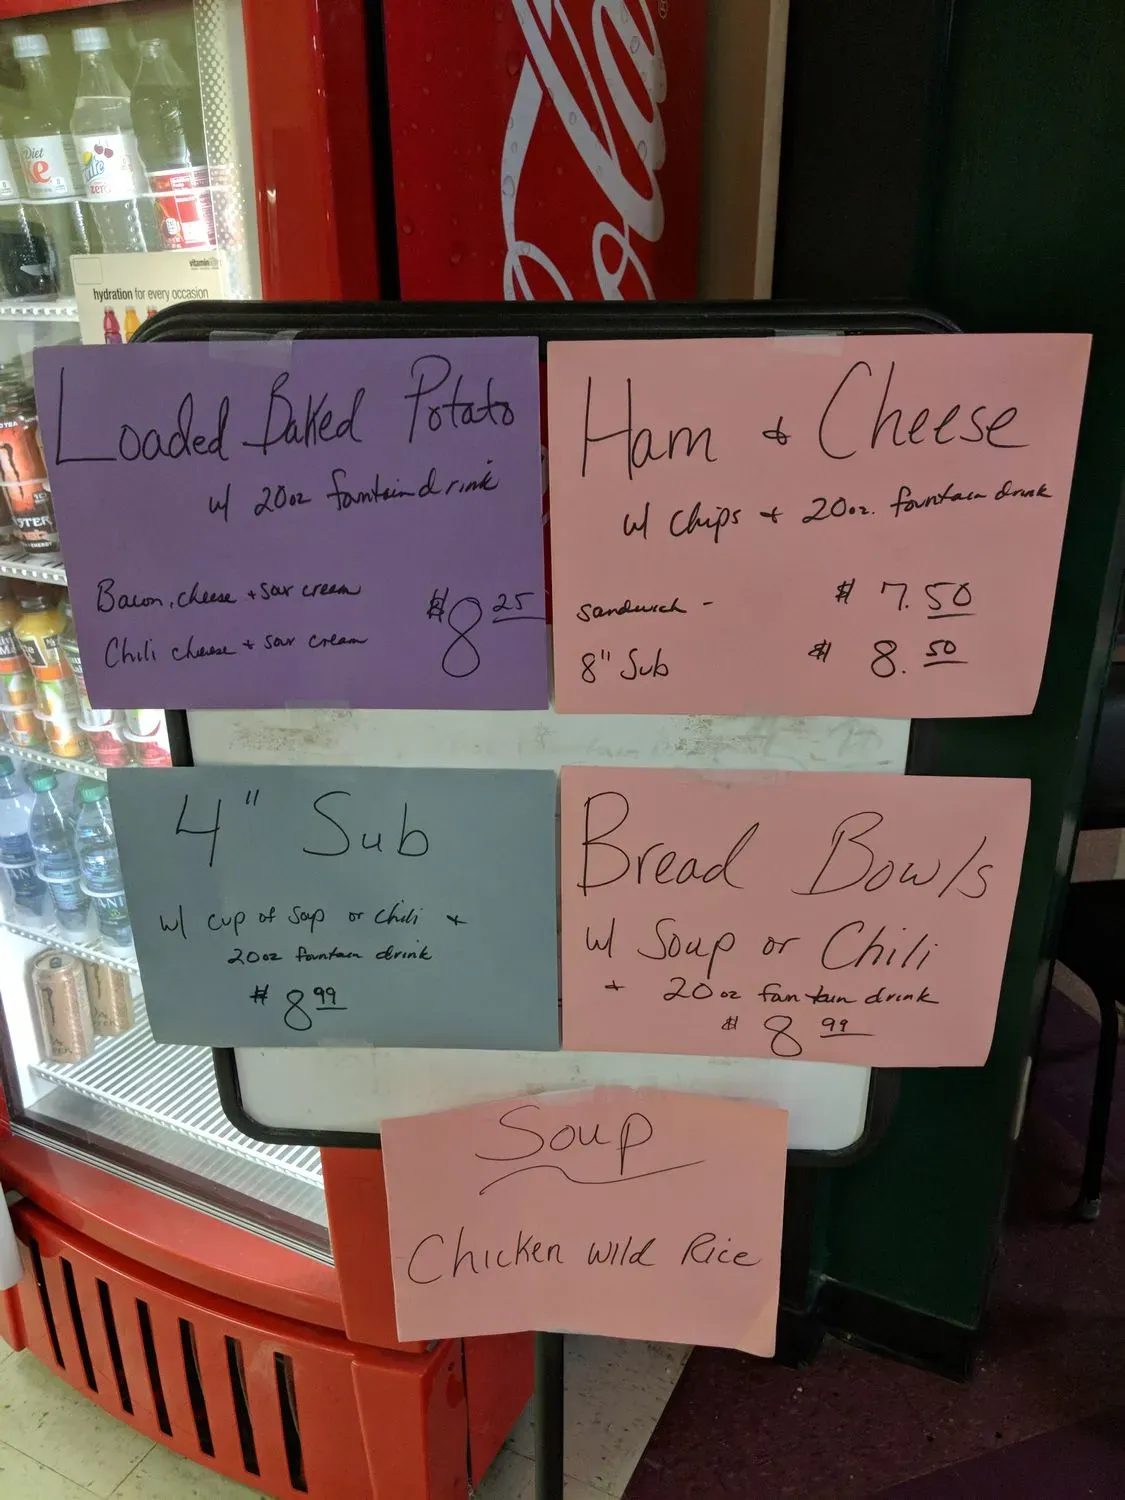 Diet
Ke
zero
Cola
®
vitamin
hydration for every occasion
Loaded Baked Potato
w/ 20oz fountain drink
Bacon, cheese + sour cream
Chili cheese + sour cream
$8 25
Ham & Cheese
w/ chips + 20oz. fountain drunk
sandwich - $ 7.50
8" Sub $ 8.50
4" Sub
w/ cup of Soup or chili +
20oz fountain drink
$ 8 99
Bread Bowls
w/ Soup or Chili
+ 20oz fantain drink
$ 8 99
Soup
Chicken Wild Rice